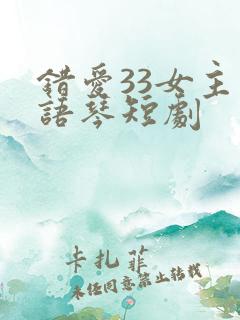 錯愛33女主
語琴短劇
卡扎菲
未任同意禁止转载